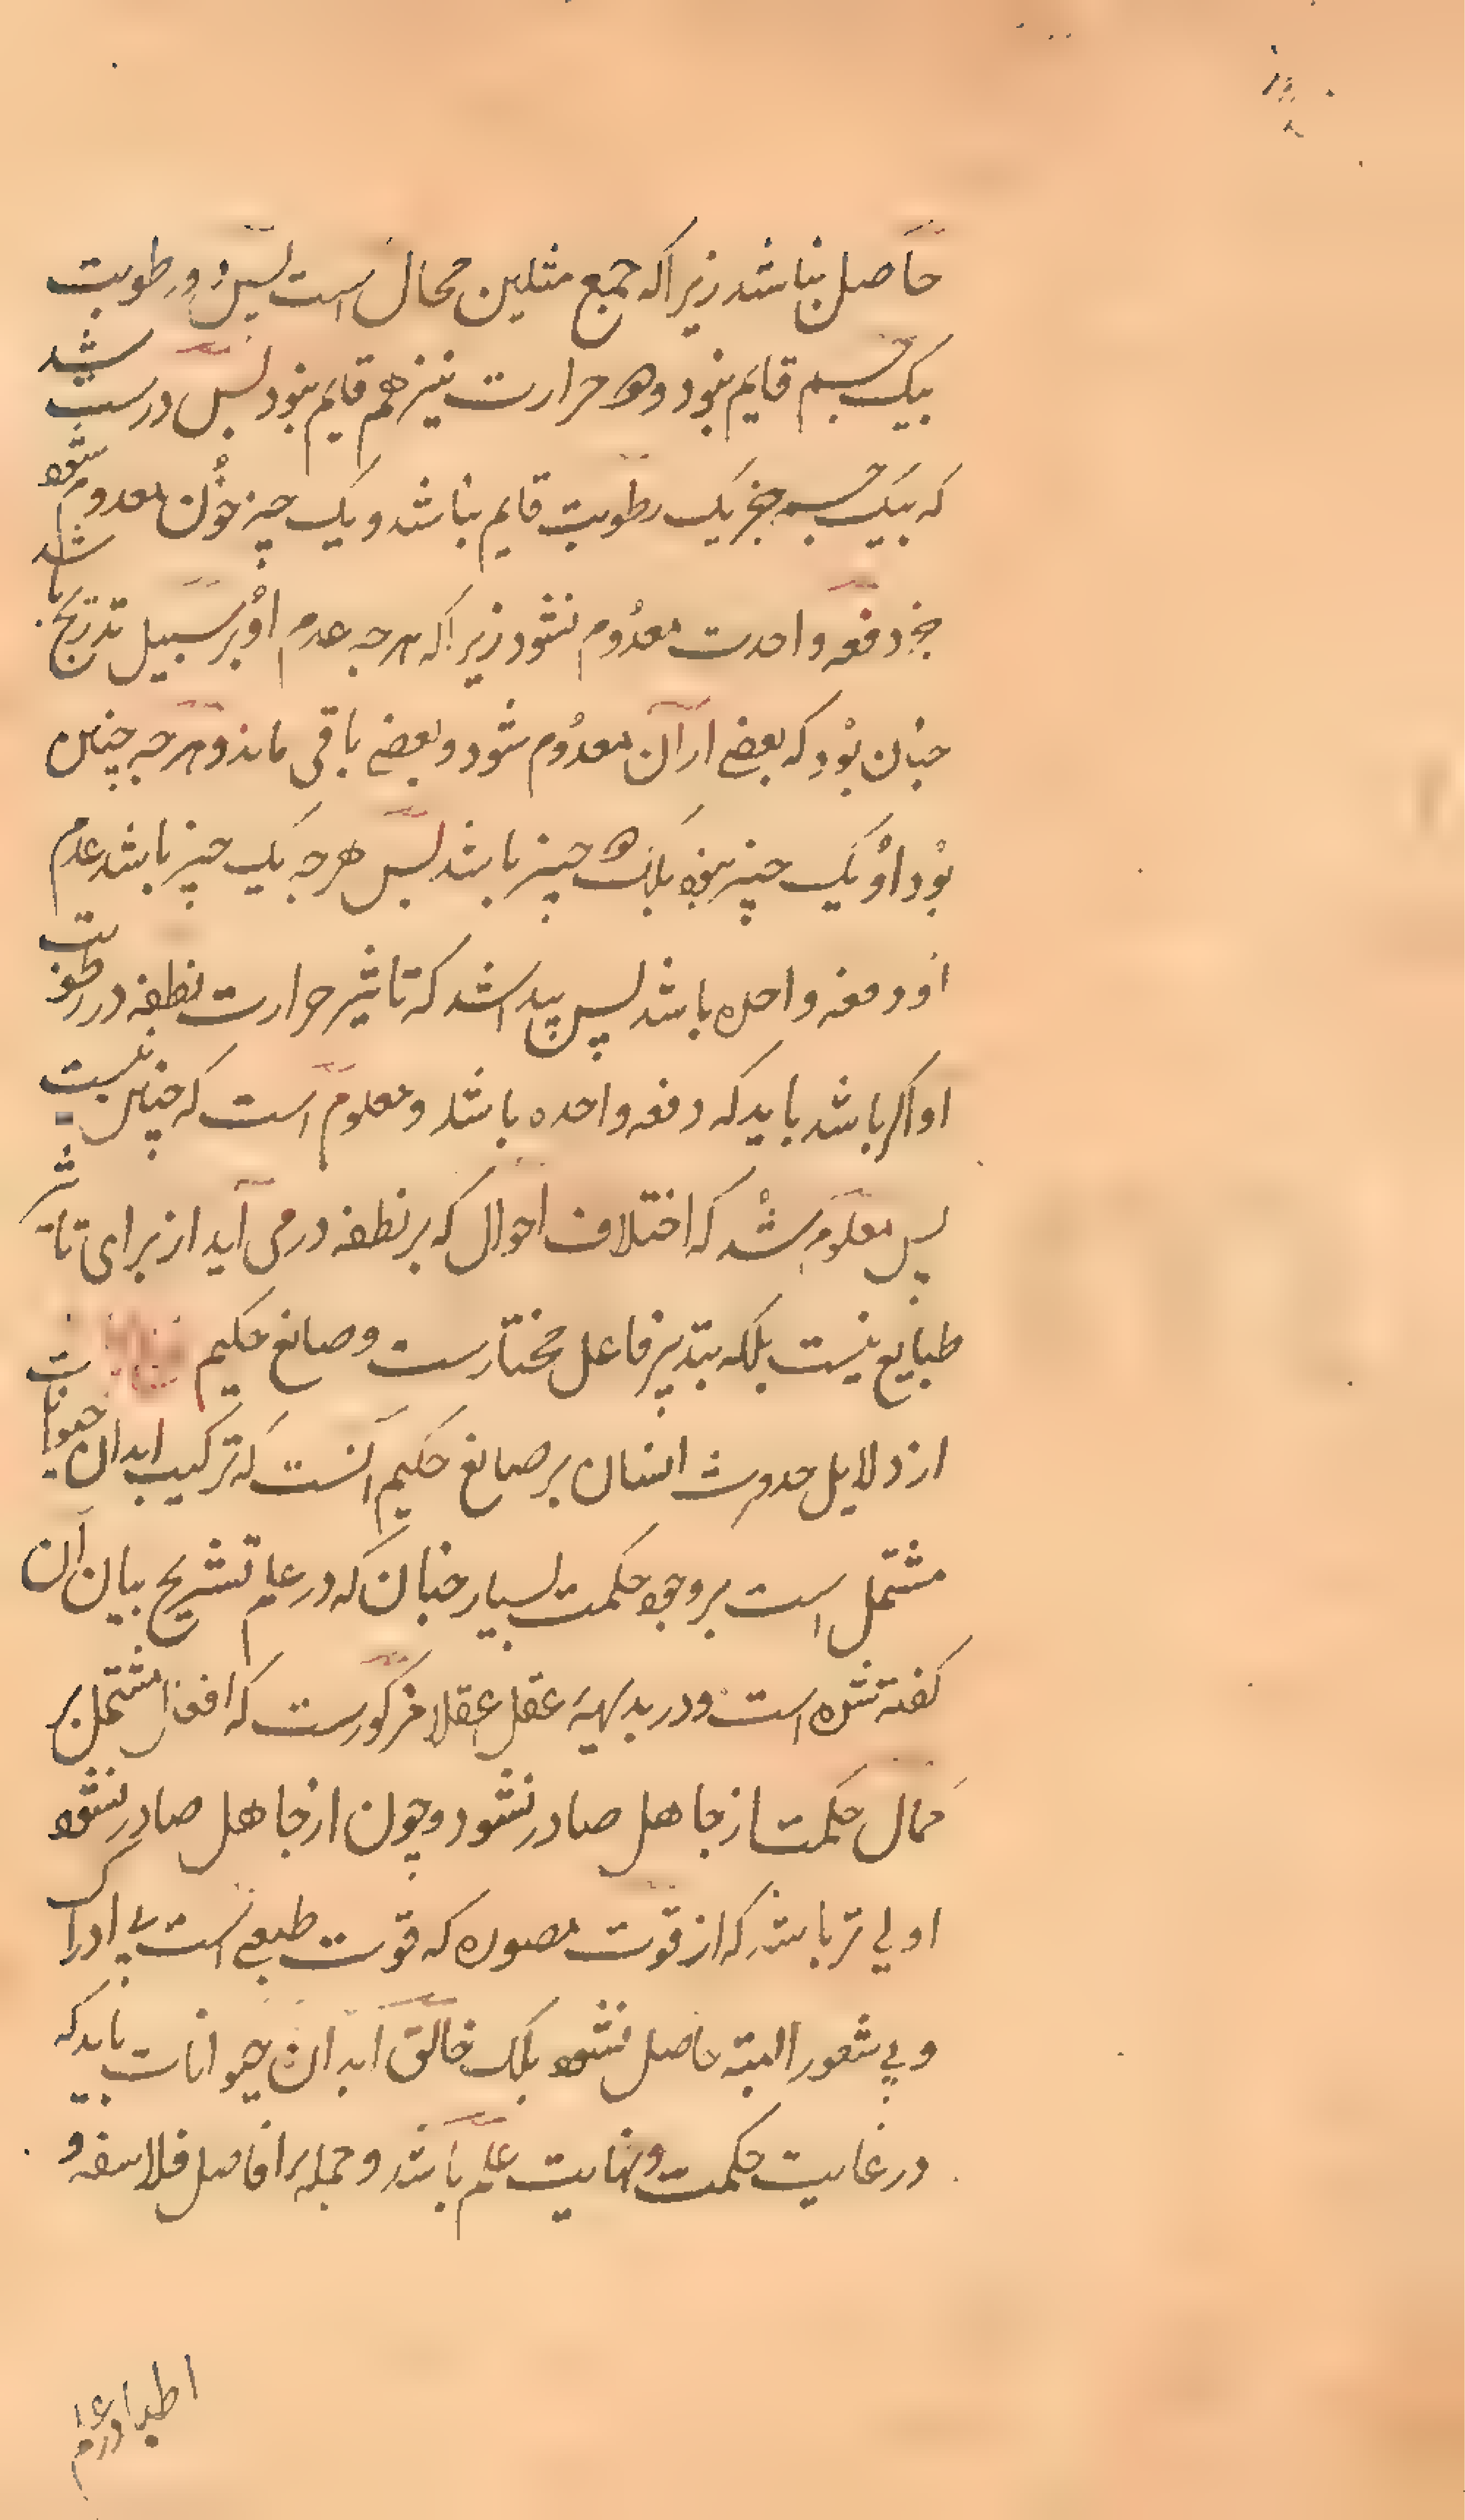 حاصل نباشد زیراکه جمع مثلین محال است پس دو رطوبت
بیک جسم قایم نبود و دو حرارت نیز هم قایم نبود پس درست شد
که بیک جسم جز یک رطوبت قایم نباشد و یک چیز چون معدوم شود
جز دفعه واحدت معدوم نشود زیراکه هرچه عدم او بر سبیل تدریج باشد
چنان بود که بعضی از آن معدوم شود و بعضی باقی ماند و هرچه چنین
بود او یک چیز نبود بلک دو چیز باشد پس هرچه یک چیز باشد عدم
او دفعه واحده باشد پس پیدا شد که تاثیر حرارت نطفه در رطوبت
او اکر باشد باید که دفعه واحده باشد و معلوم است که چنین نیست
پس معلوم شد که اختلاف احوال که بر نطفه در می آید از برای تاثیر
طبایع نیست بلکه بتدبیر فاعل مختارست و صانع حکیم
از دلایل حدوث انسان بر صانع حکیم آنست که ترکیب ابدان حیوانات
مشتمل است بر وجوه حکمت بسیار چنان که در علم تشریح بیان آن
کفته شده است و در بدیهیه عقل عقلا مرکوزست که افعال مشتمل بر
کمال حکمت از جاهل صادر نشود و چون از جاهل صادر نشود
اولی تر باشد که از قوت مصوره که قوت طبعی است بی ادراک
و بی شعور البته حاصل نشود بلک خالق ابدان حیوانات باید که
در غایت حکمت و نهایت علم باشد و جمله افاضل فلاسفه و
اطبا در علم